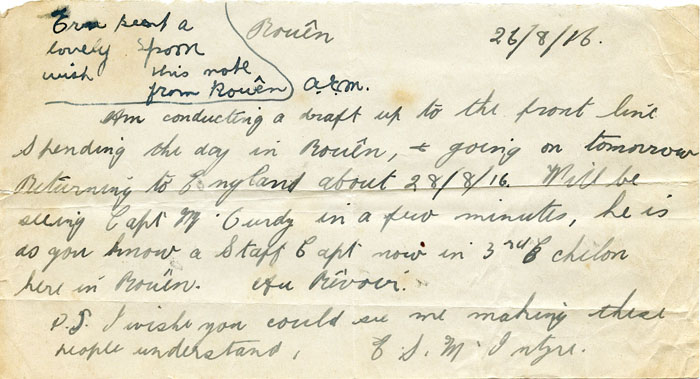 Ern sent a
lovely spoon
wish this note
from Rouên A.E.M.
Rouên 26/8/16.
Am conducting a draft up to the front line
spending the day in Rouên, & going on tomorrow
Returning to England about 28/8/16. Will be
seeing Capt McCurdy in a few minutes, he is
as you know a Staff Capt now in 3rd Echilon
here in Rouên. Au Rêvoir.
P.S. I wishe you could see me making these
people understand, E. S. McIntyre.